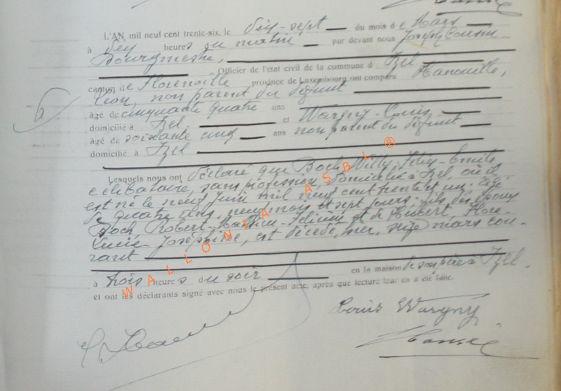 L'AN mil neuf cent trente-six, le dix-sept du mois de Mars
à dix heures du matin par devant nous Joseph
Bourgmestre,
Officier de l'état civil de la commune d' Izel
canton de Florenville province de Luxembourg ont comparu Hanouille,
Léon, non parent du défunt
âgé de cinquante quatre ans
domicilié à Izel et Wargny Louis
âgé de soixante cinq ans non parent du défunt
domicilié à Izel
Lesquels nous ont déclaré que Boch, Willy,
célibataire, sans profession, domicilié à Izel où il
est né le neuf juin mil neuf cent trente et un, âgé
de quatre ans, neuf mois et sept jours, fils des époux
Boch, Robert, et de Hubert
Lucie Joséphine, est décédé hier, seize mars cou-
rant
à trois heures du soir en la maison Izel.
et ont les déclarants signé avec nous le présent acte, après que lecture leur en a été faite.
Louis Wargny
WALLONIA ASBL ©